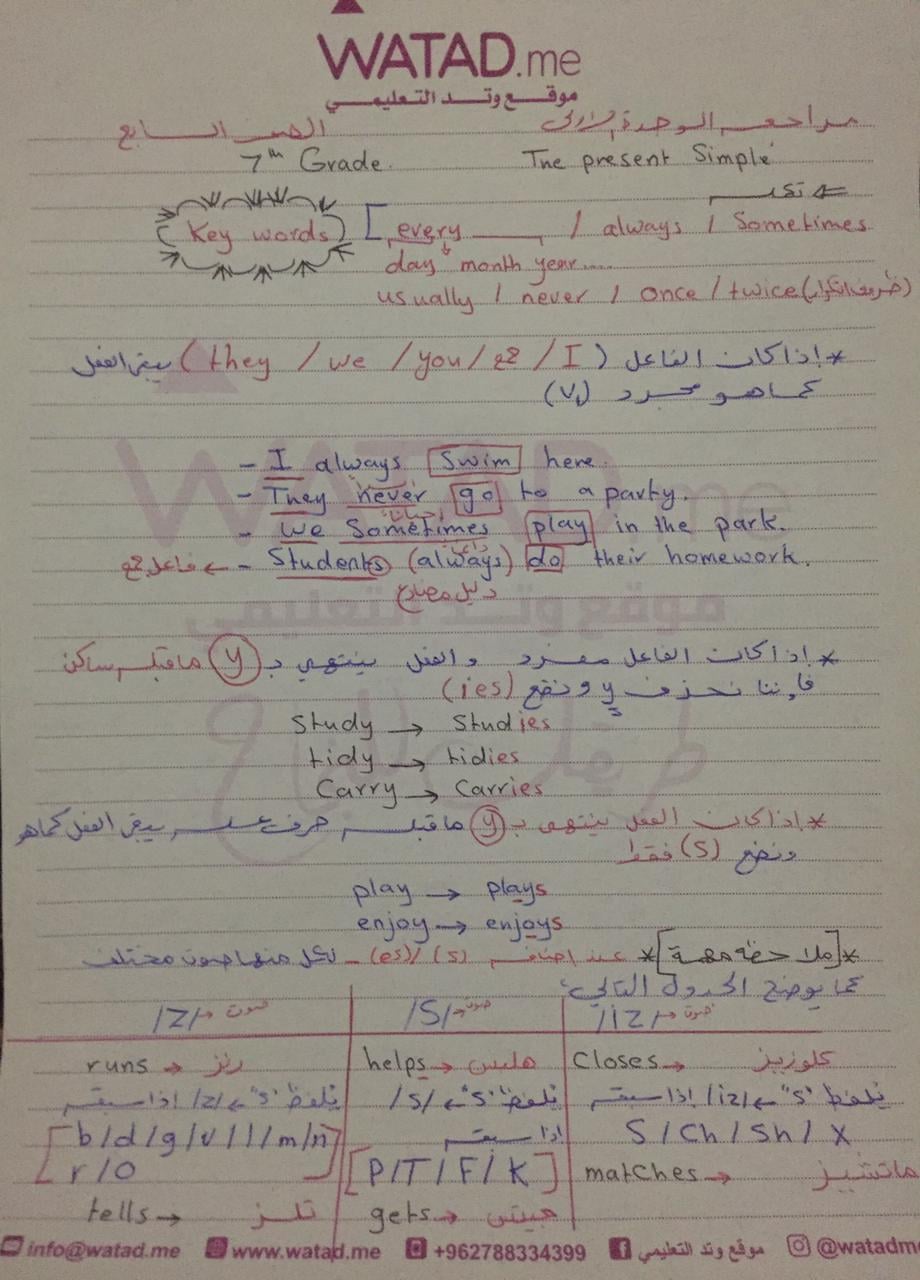 WATAD.me
موقع وتد التعليمي
مراجعة الوحدة الاولى الصف السابع
The present Simple 7th Grade.
Key words [ every ____ / always / Sometimes
day month year....
usually / never / once / twice (ظروف التكرار)
* إذا كان الفاعل ( they / we / you / جمع / I ) يبقى الفعل
كما هو مجرد (V1)
- I always Swim here.
- They never go to a party.
أحياناً
- we Sometimes play in the park.
دائماً
- Students (always) do their homework. ← فاعل جمع
دليل مضارع
* إذا كان الفاعل مفرد والفعل ينتهي بـ (y) ما قبله ساكن
فإننا نحذف y ونضع (ies)
Study → Studies
tidy → tidies
Carry → Carries
* إذا كان الفعل ينتهي بـ (y) ما قبله حرف علة يبقى الفعل كما هو
ونضع (S) فقط
play → plays
enjoy → enjoys
* [ملاحظة مهمة] * عند إضافة (S) / (es) - لكل منها صوت مختلف
كما يوضح الجدول التالي:
صوت → /iz/ صوت → /S/ صوت → /Z/
Closes → كلوزيز helps → هلبس runs → رنز
يُلفظ "S" ← /iz/ إذا سبقه يُلفظ "S" ← /S/ يُلفظ "S" ← /z/ إذا سبقه
S / Ch / Sh / X إذا سبقه [b/d/g/v/l/m/n
matches → ماتشيز [P/T/F/K] r/o]
gets → جيتس tells → تلز
info@watad.me www.watad.me +962788334399 موقع وتد التعليمي @watadme